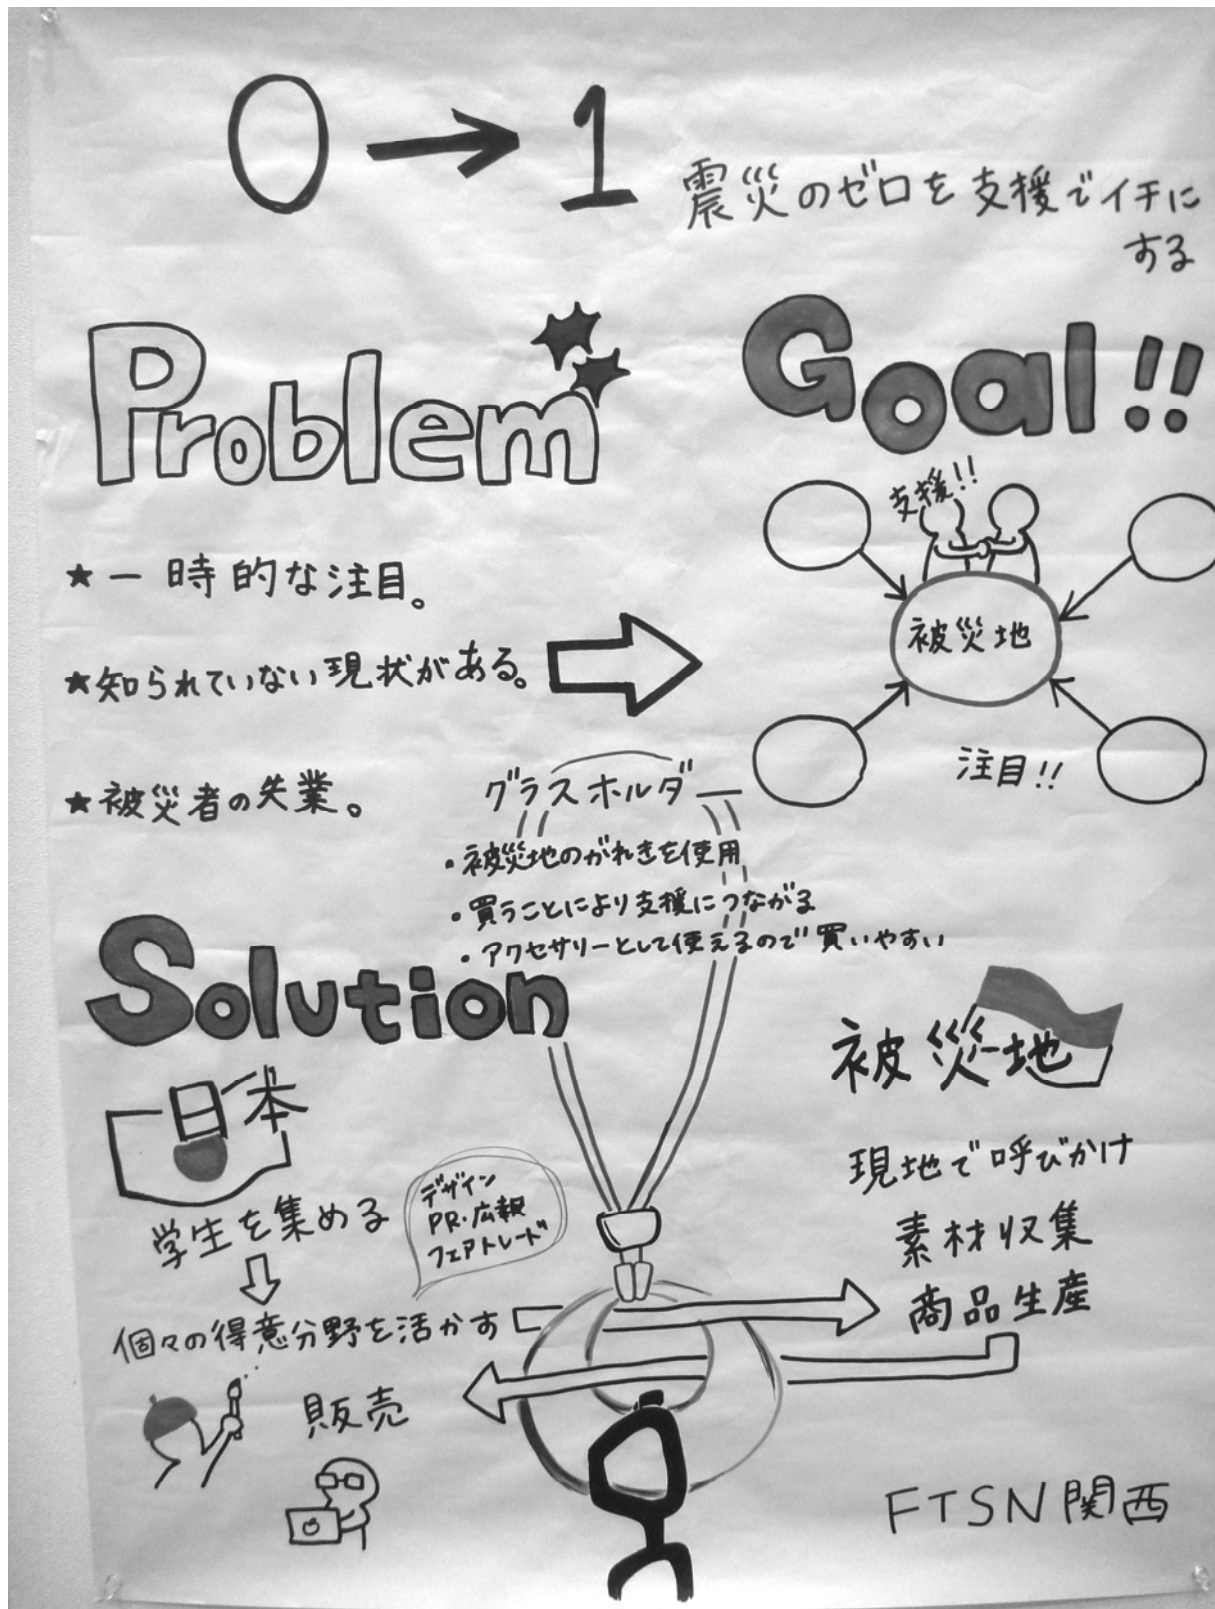 0→1
震災のゼロを支援でイチに
する
Problem
Goal!!
支援!!
被災地
注目!!
★一時的な注目。
★知られていない現状がある。
★被災者の失業。
グラスホルダー
・被災地のがれきを使用
・買うことにより支援につながる
・アクセサリーとして使えるので買いやすい
Solution
日本
学生を集める
デザイン
PR・広報
フェアトレード
個々の得意分野を活かす
販売
被災地
現地で呼びかけ
素材収集
商品生産
FTSN関西